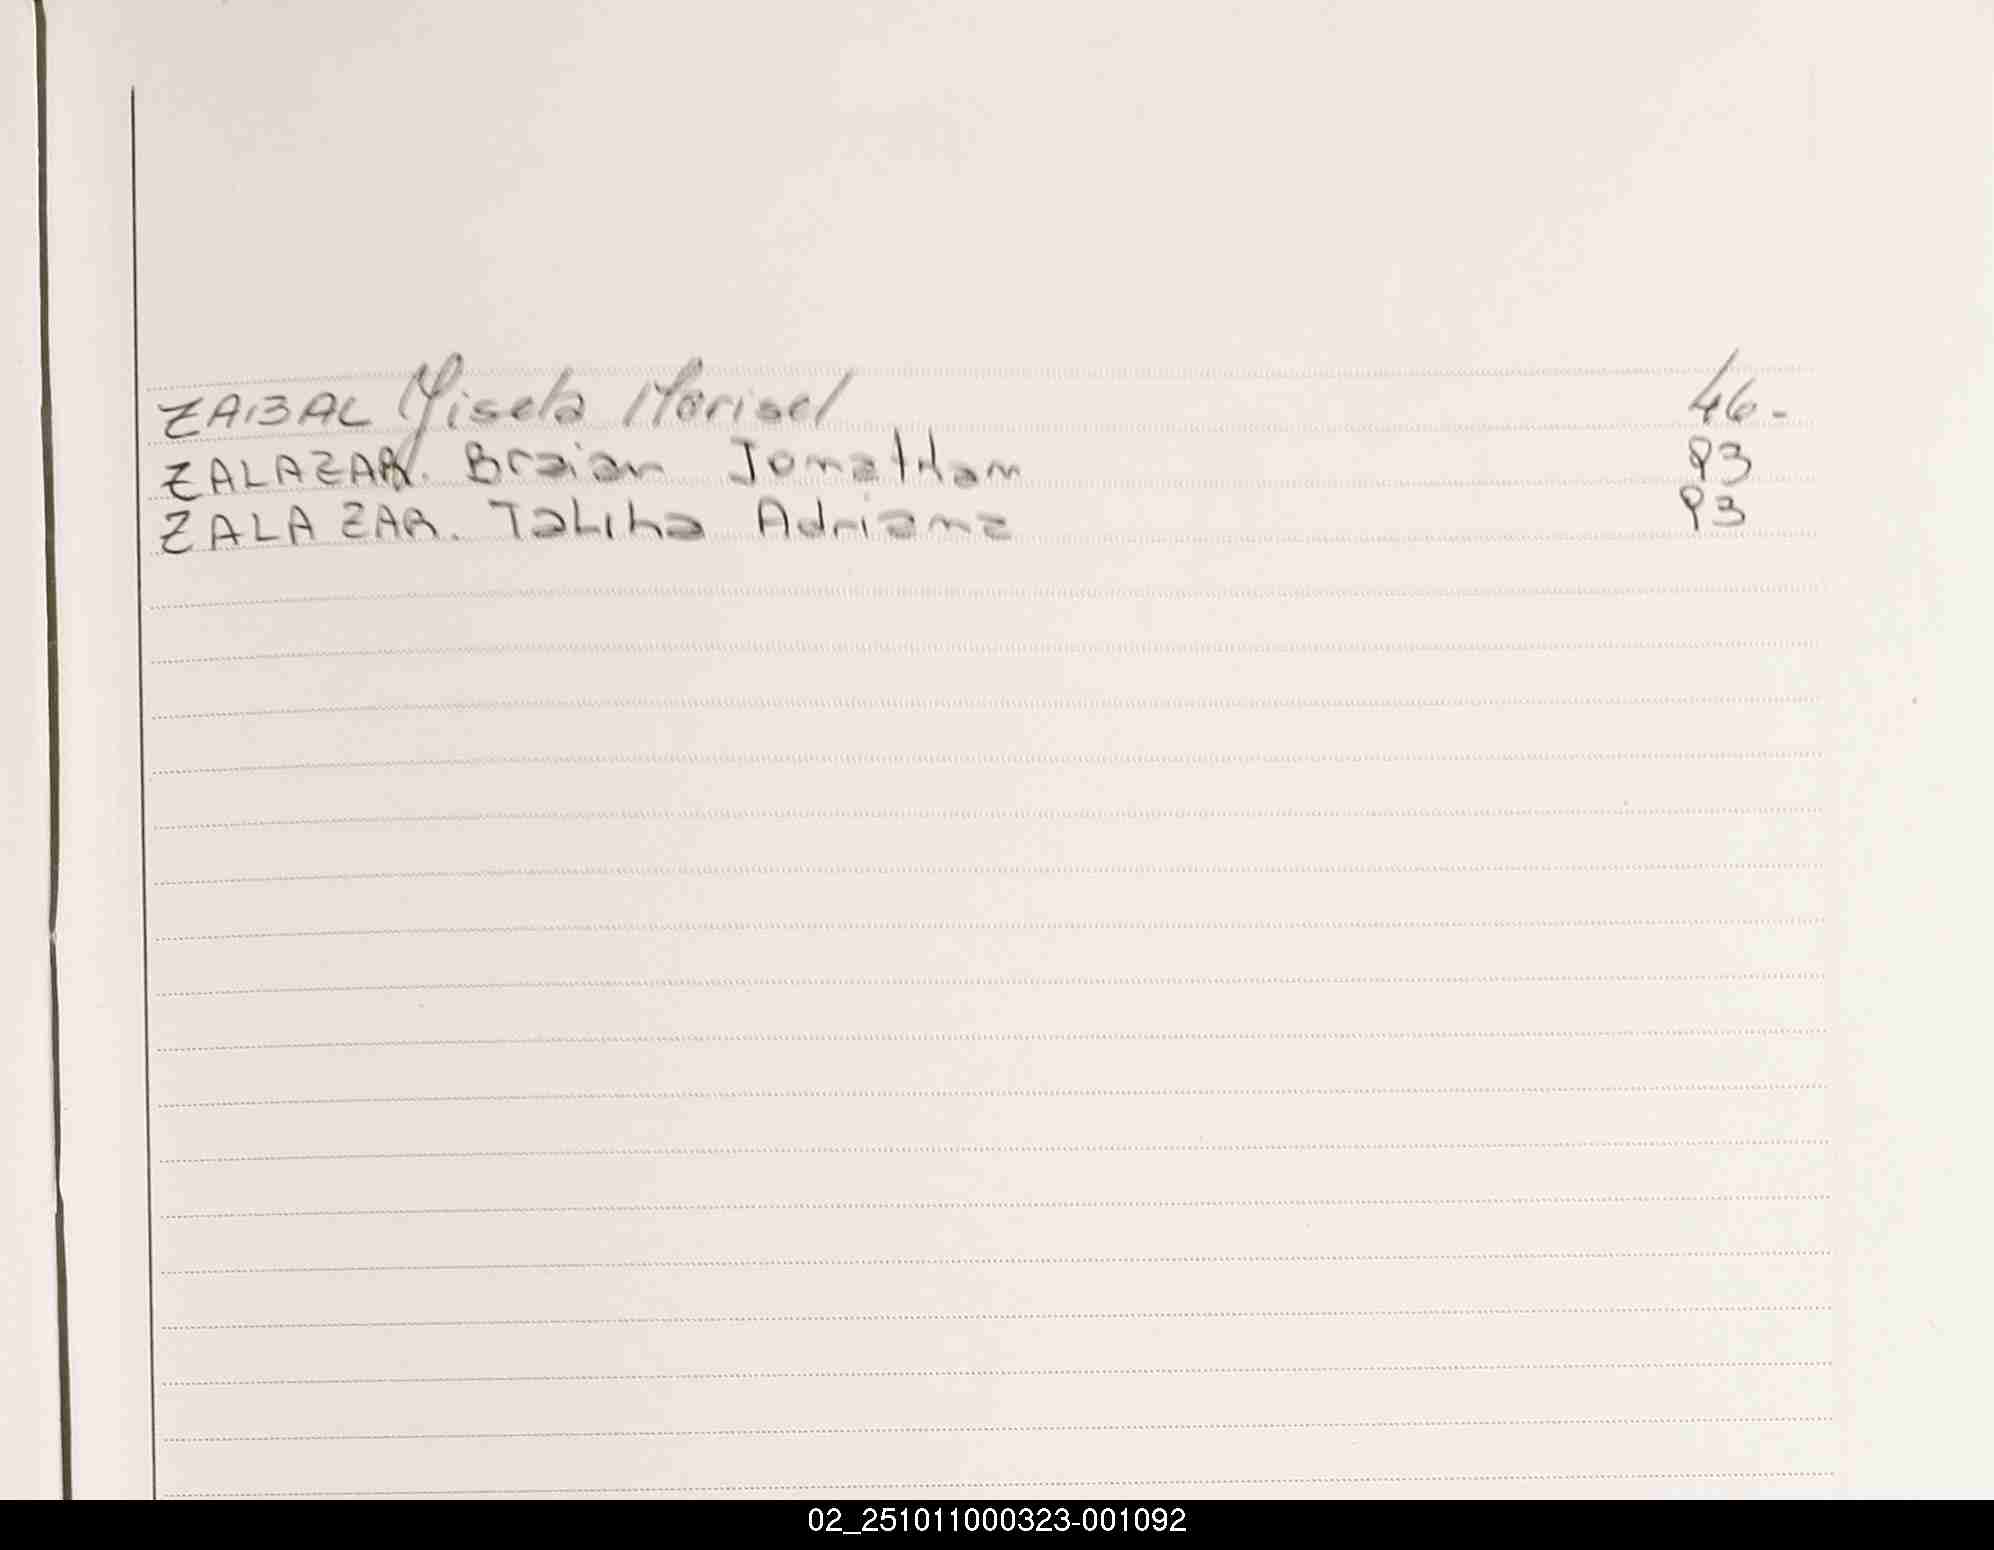 ZABAL Gisela Marisel 46-
ZALAZAR. Braian Jonathan 93
ZALAZAR. Taliha Adriana 93
02_251011000323-001092